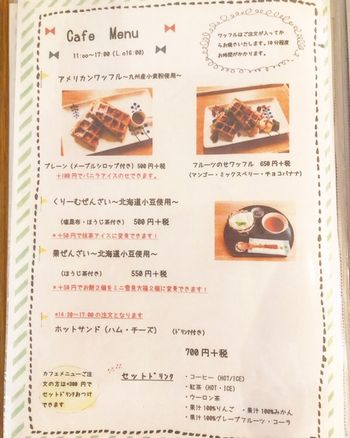 Cafe Menu
11:00~17:00 (L.o16:00)
ワッフルはご注文が入ってか
らお焼きいたします。10分程度
お時間がかかります。
アメリカンワッフル~九州産小麦粉使用~
プレーン (メープルシロップ付き) 500円+税
+100円でバニラアイスのせできます。
フルーツのせワッフル 650円+税
(マンゴー・ミックスベリー・チョコバナナ)
くりーむぜんざい~北海道小豆使用~
(塩昆布・ほうじ茶付き) 500円+税
*+50円で抹茶アイスに変更できます!
栗ぜんざい~北海道小豆使用~
(ほうじ茶付き) 550円+税
*+50円でお餅2個をミニ雪見大福2個に変更できます!
*14:30~17:00の注文となります
ホットサンド (ハム・チーズ) (ドリンク付き)
700円+税
カフェメニューご注
文の方は+300円で
セットドリンクおつけ
できます
セットドリンク
・コーヒー (HOT/ICE)
・紅茶 (HOT・ICE)
・ウーロン茶
・果汁100%りんご ・果汁100%みかん
・果汁100%グレープフルーツ・コーラ